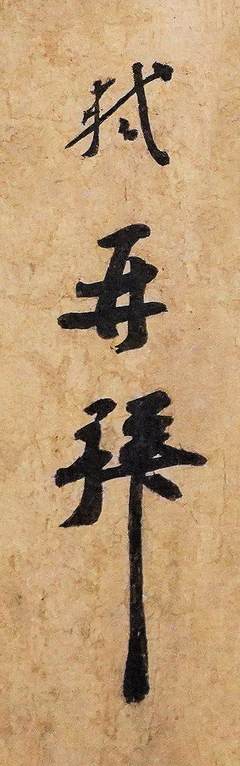 軾再拜